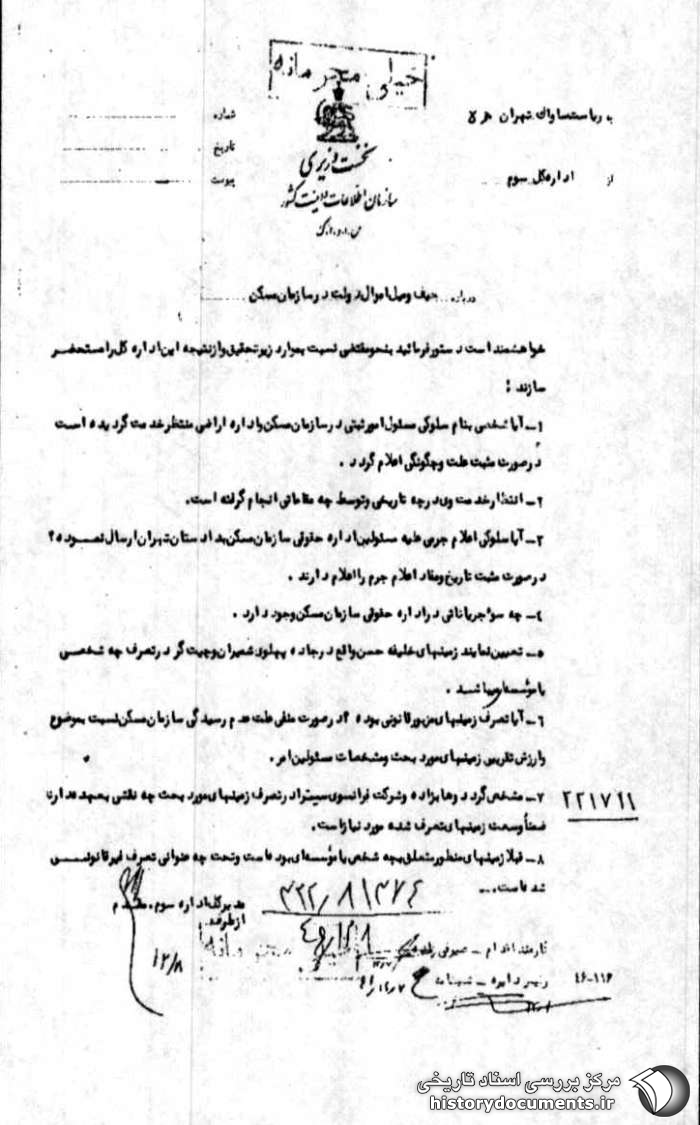 خیلی محرمانه
به ریاست ساواک تهران ه ۳
شماره
از اداره کل سوم
تاریخ
پیوست
نخست وزیری
سازمان اطلاعات و امنیت کشور
س.ا.و.ا.ک
درباره حیف و میل اموال دولت در سازمان مسکن
خواهشمند است دستور فرمائید بنحو مقتضی نسبت بموارد زیر تحقیق و از نتیجه این اداره کل را مستحضر
سازند :
۱- آیا شخصی بنام سلوکی مسئول امور ثبتی در سازمان مسکن و اداره اراضی منتظر خدمت گردیده است
در صورت مثبت علت و چگونگی اعلام گردد .
۲- انتظار خدمت وی در چه تاریخی و توسط چه مقاماتی انجام گرفته است.
۳- آیا سلوکی اعلام جرمی علیه مسئولین اداره حقوقی سازمان مسکن به دادستان تهران ارسال نموده ؟
در صورت مثبت تاریخ و مفاد اعلام جرم را اعلام دارند .
۴- چه سوء جریاناتی در اداره حقوقی سازمان مسکن وجود دارد .
۵- تعیین نمایند زمینهای خلیفه حسن واقع در جاده پهلوی شمیران و چیت گر در تصرف چه شخصی
یا مؤسسه ای میباشد .
۶- آیا تصرف زمینهای مزبور قانونی بوده ؟ در صورت منفی علت عدم رسیدگی سازمان مسکن نسبت بموضوع
و ارزش تقریبی زمینهای مورد بحث و مشخصات مسئولین امر .
۷- مشخص گردد وهابزاده و شرکت فرانسوی سیترا در تصرف زمینهای مورد بحث چه نقشی بعهده دارند
ضمناً وسعت زمینهای تصرف شده مورد نیاز است.
۲۲۱۷۶۱
۸- قبلا زمینهای منظور متعلق به چه شخص یا مؤسسه ای بوده است و تحت چه عنوانی تصرف غیر قانونی
شده است
۳۲۲/۸۱۳۷۴
مدیر کل اداره سوم. مقدم
از طرف
۱۲/۸
محرمانه
کارمند اقدام -
رئیس دایره -
۴۶-۱۱۶
مرکز بررسی اسناد تاریخی
historydocuments.ir